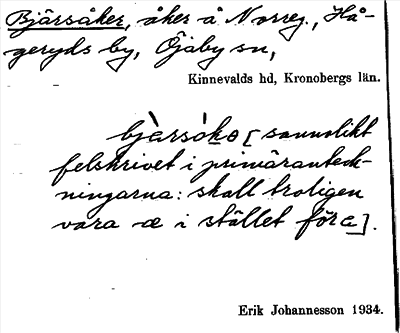 Bjärsåker, åker å Norreg., Hå-
geryds by, Öjaby sn,
Kinnevalds hd, Kronobergs län.
bjàrsókɵ [sannolikt
felskrivet i primäranteck-
ningarna: skall troligen
vara æ i stället för a].
Erik Johannesson 1934.